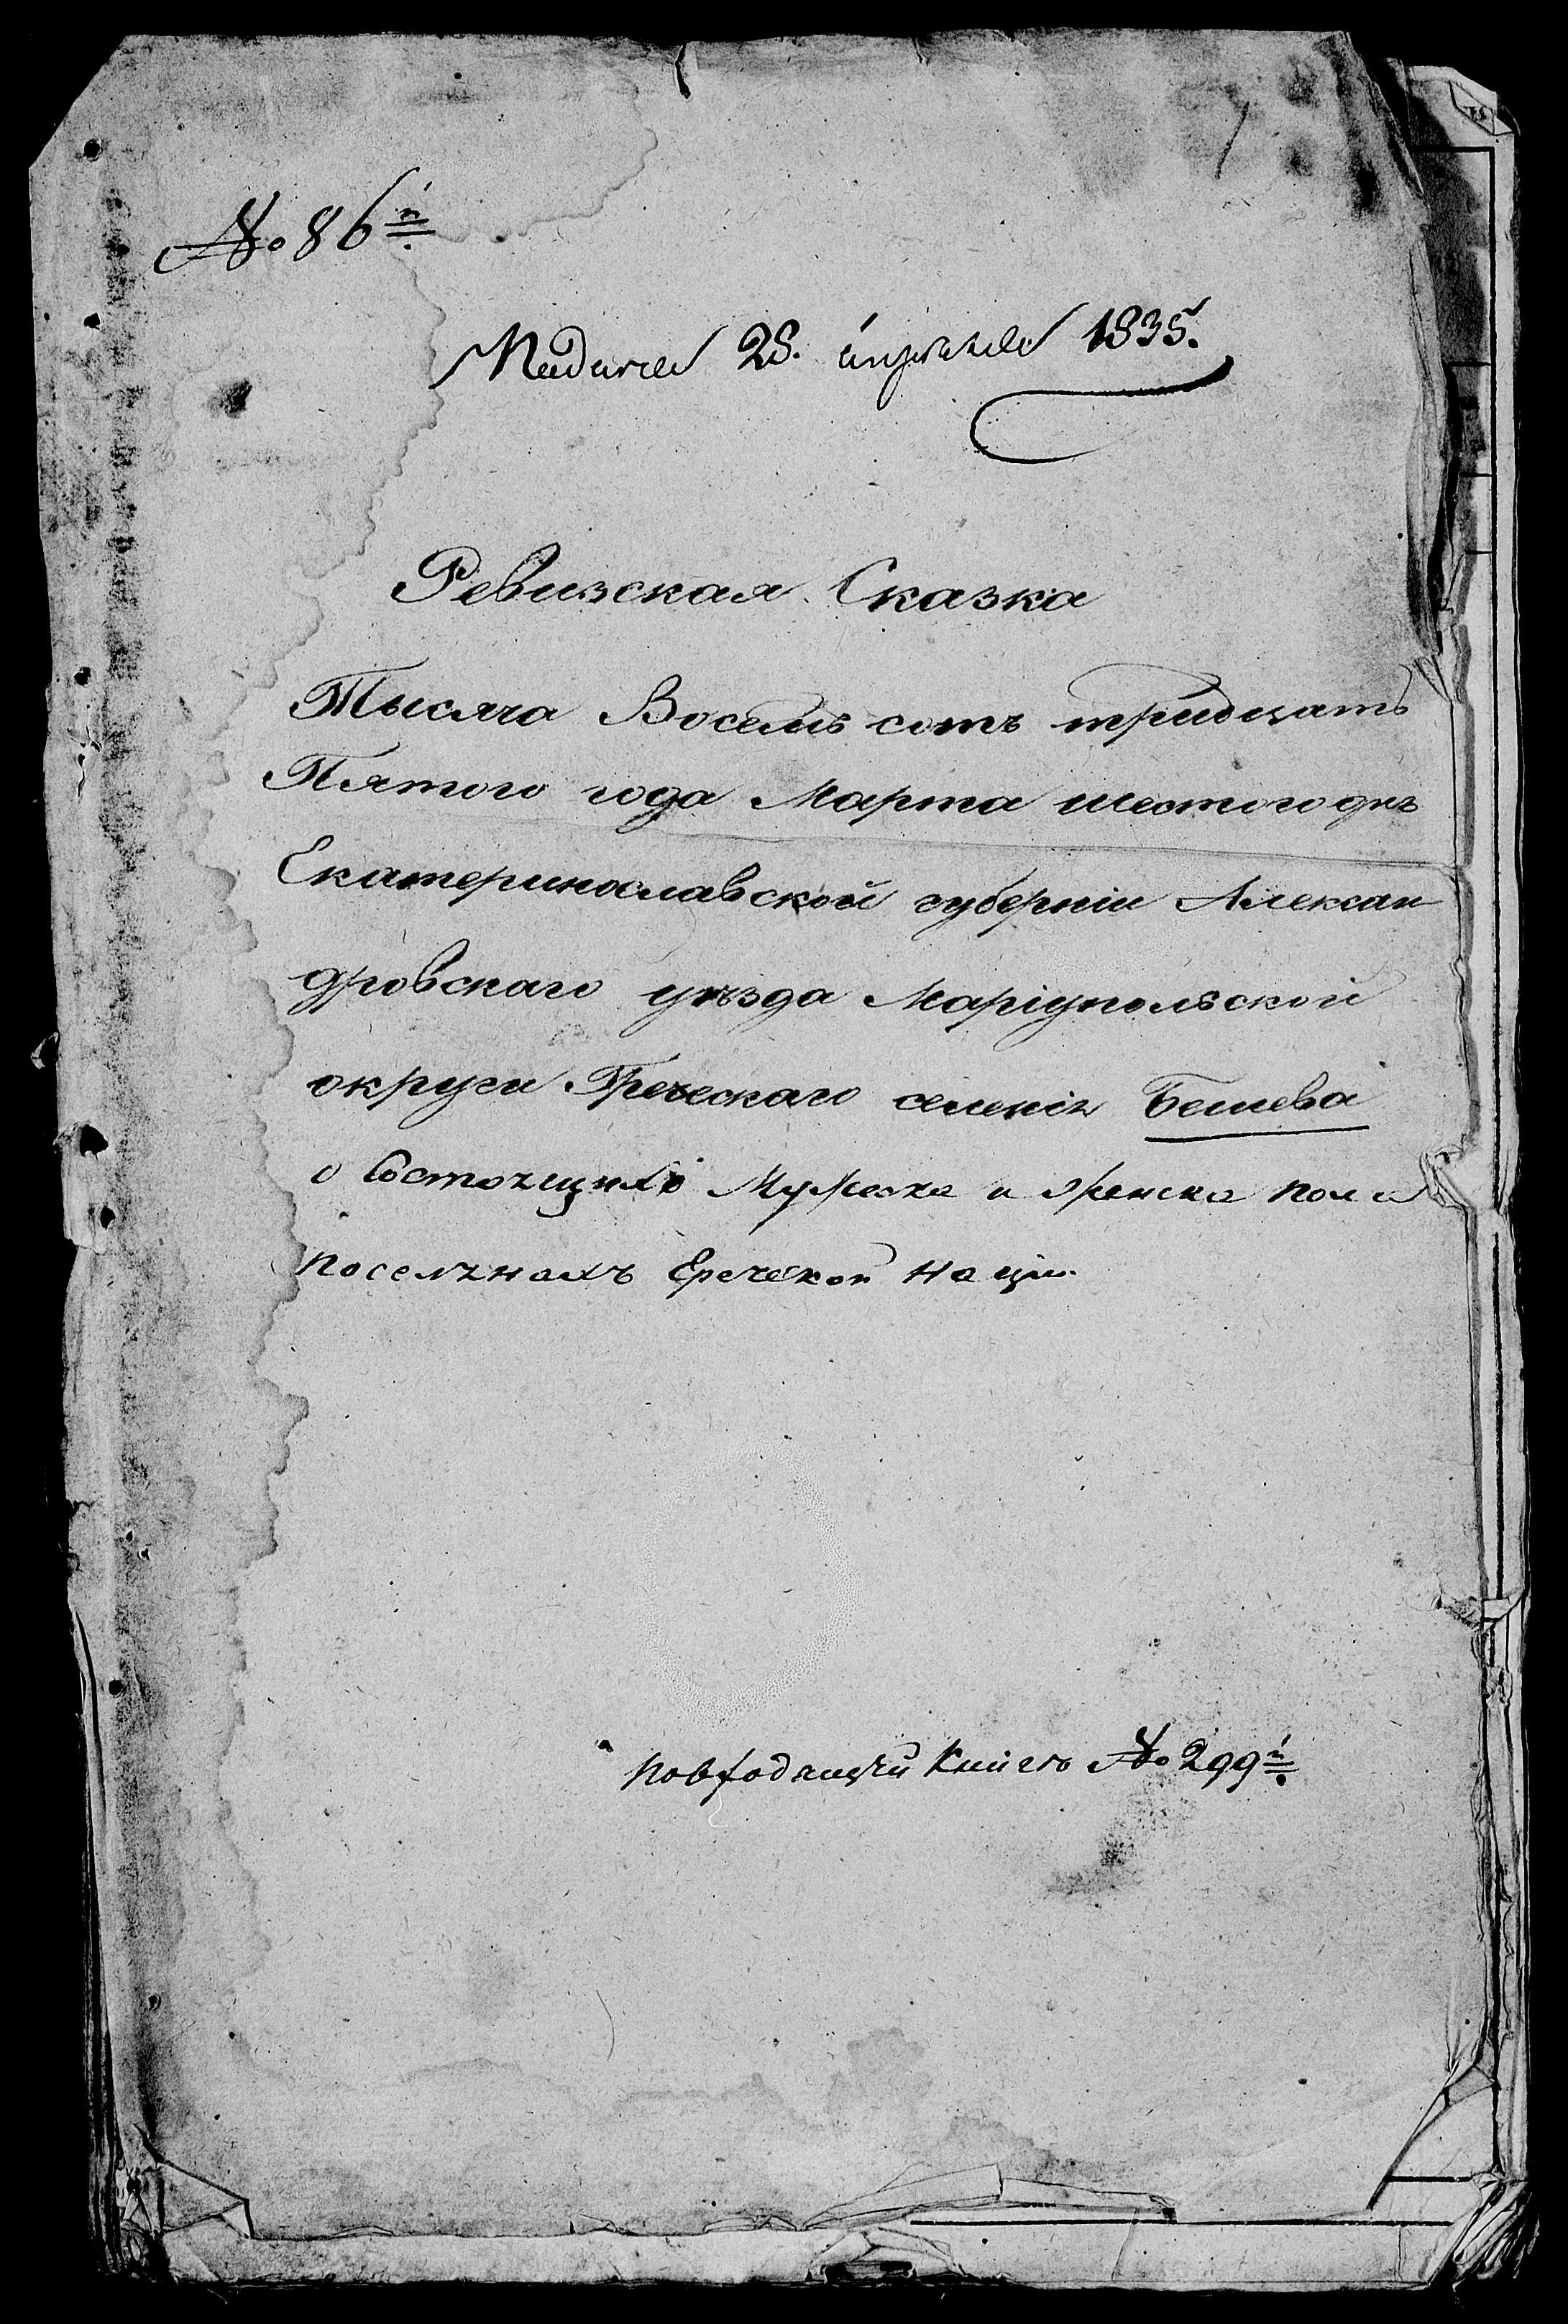 № 86й
Подана 28. апреля 1835.
Ревизская Сказка
Тысяча Восемь сотъ тридцать
Пятого года Марта шестого дня
Екатеринославской губерніи Алексан
дровскаго уѣзда Маріупольской
округи Греческаго селенія Бешева
о Состоящихъ Мужеска и женска пола
поселянахъ Греческой Націи.
по входящей Книге № 299й